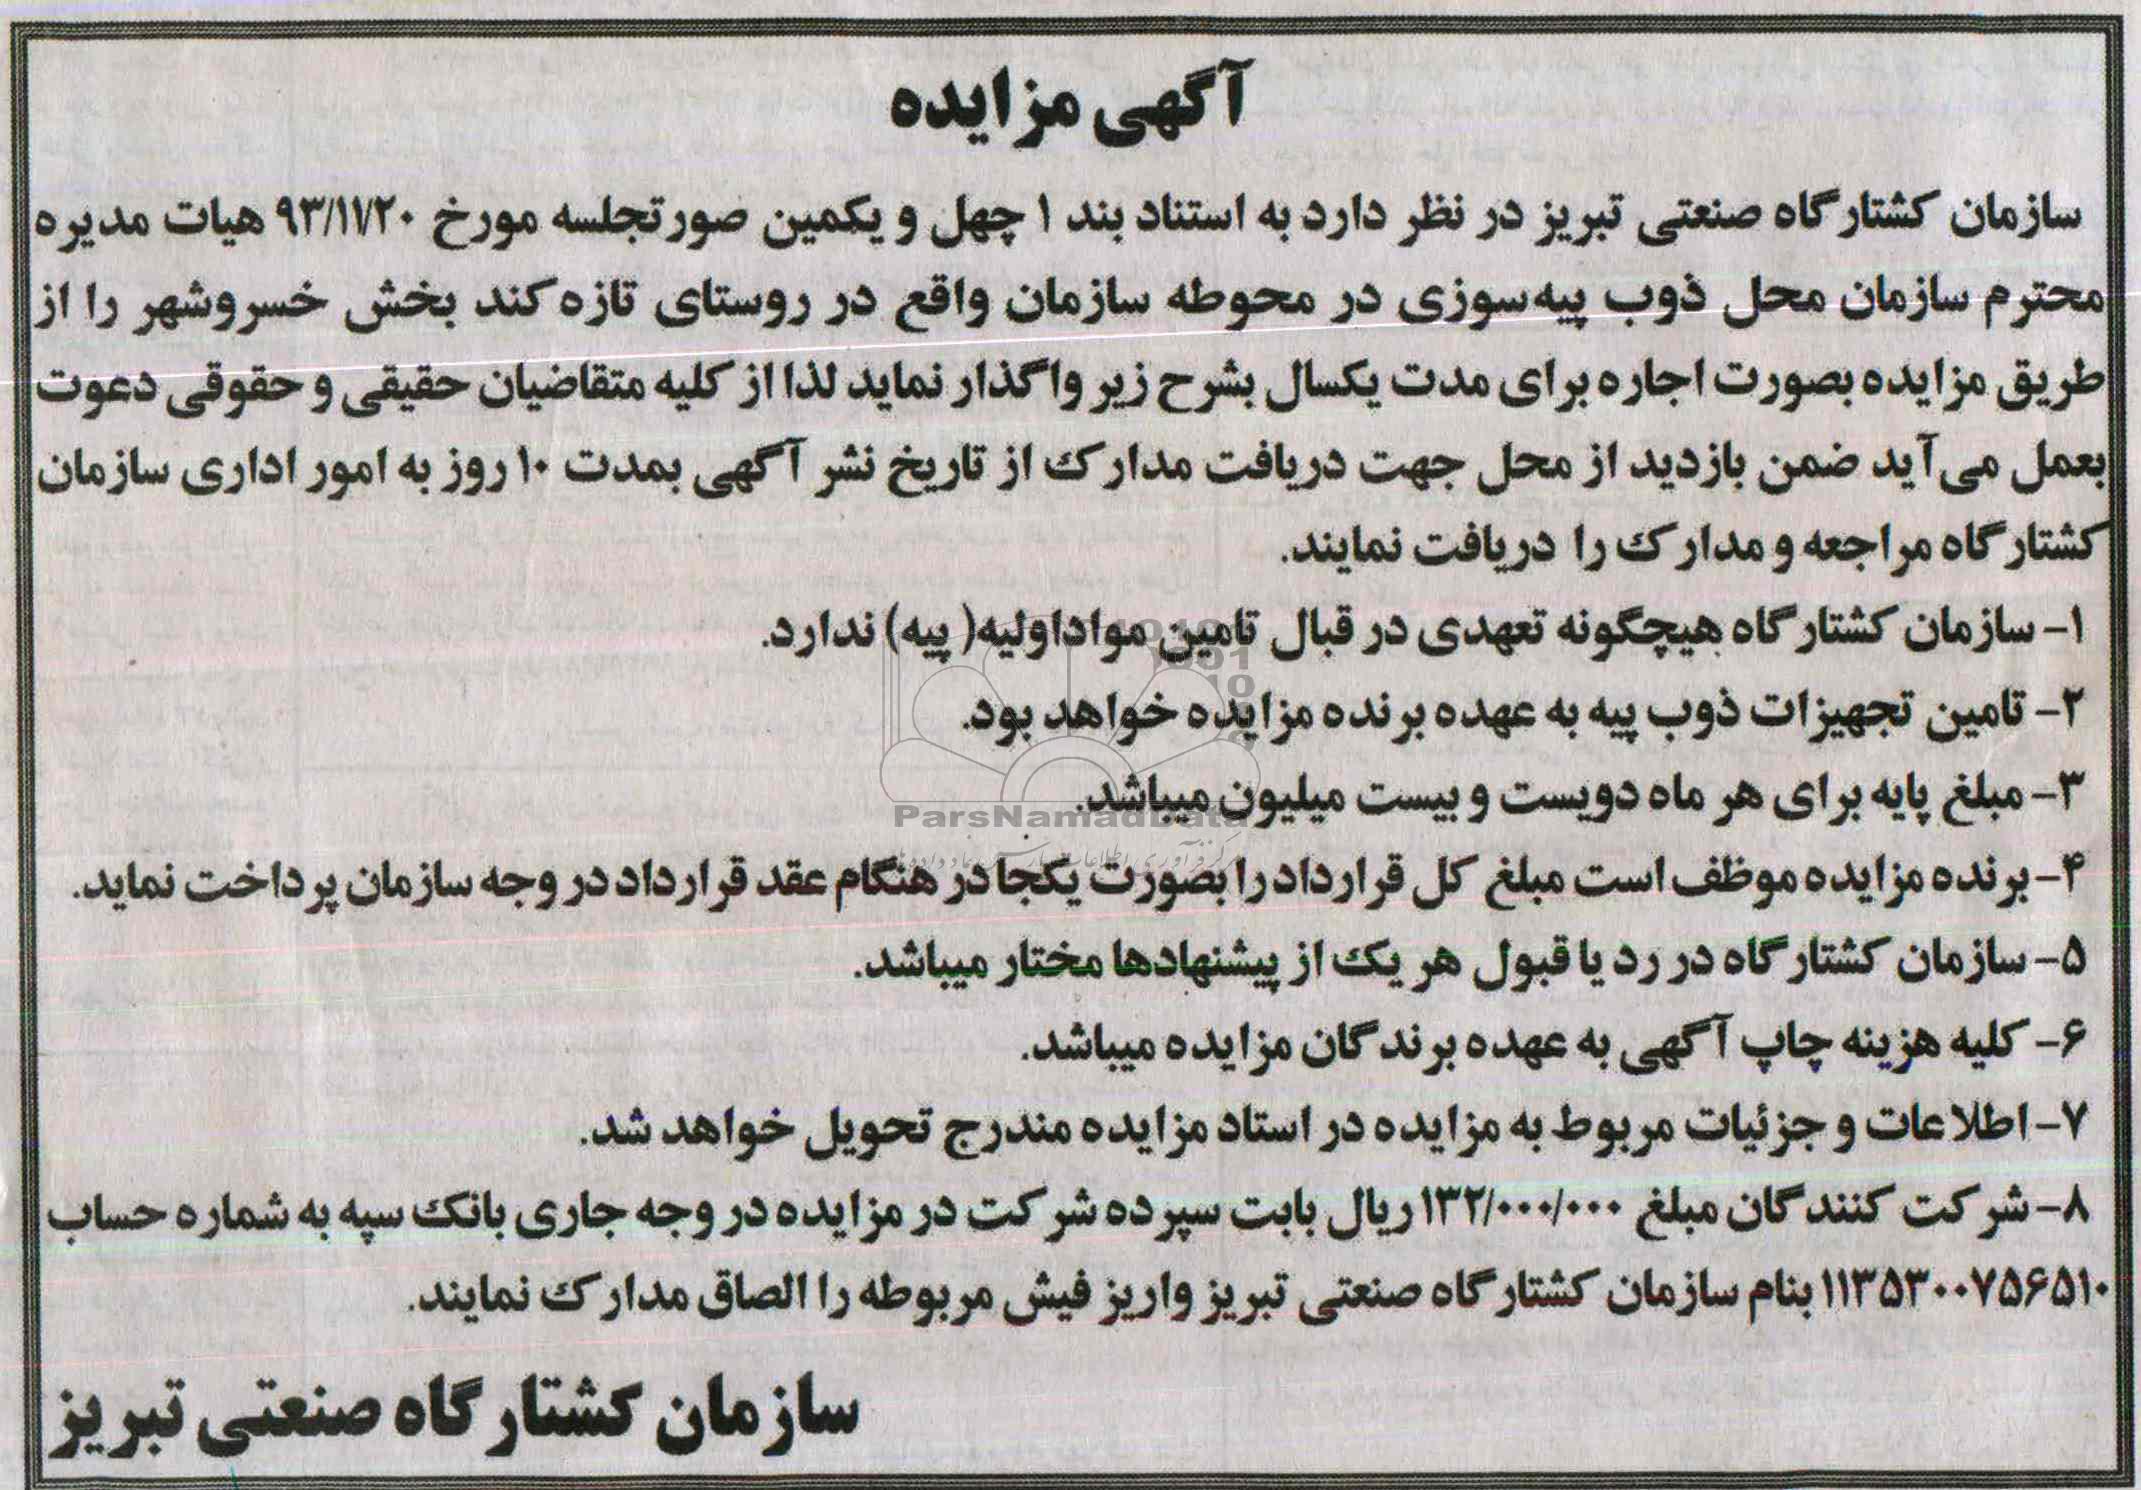 آگهی مزایده
سازمان کشتارگاه صنعتی تبریز در نظر دارد به استناد بند ۱ چهل و یکمین صورتجلسه مورخ ۹۳/۱۱/۲۰ هیات مدیره
محترم سازمان محل ذوب پیه‌سوزی در محوطه سازمان واقع در روستای تازه‌کند بخش خسروشهر را از
طریق مزایده بصورت اجاره برای مدت یکسال بشرح زیر واگذار نماید لذا از کلیه متقاضیان حقیقی و حقوقی دعوت
بعمل می‌آید ضمن بازدید از محل جهت دریافت مدارک از تاریخ نشر آگهی بمدت ۱۰ روز به امور اداری سازمان
کشتارگاه مراجعه و مدارک را دریافت نمایند.
۱- سازمان کشتارگاه هیچگونه تعهدی در قبال تامین مواد اولیه( پیه) ندارد.
۲- تامین تجهیزات ذوب پیه به عهده برنده مزایده خواهد بود.
۳- مبلغ پایه برای هر ماه دویست و بیست میلیون میباشد.
ParsNamadData
۴- برنده مزایده موظف است مبلغ کل قرارداد را بصورت یکجا در هنگام عقد قرارداد در وجه سازمان پرداخت نماید.
۵- سازمان کشتارگاه در رد یا قبول هر یک از پیشنهادها مختار میباشد.
۶- کلیه هزینه چاپ آگهی به عهده برندگان مزایده میباشد.
۷- اطلاعات و جزئیات مربوط به مزایده در استاد مزایده مندرج تحویل خواهد شد.
۸- شرکت کنندگان مبلغ ۱۳۲/۰۰۰/۰۰۰ ریال بابت سپرده شرکت در مزایده در وجه جاری بانک سپه به شماره حساب
۱۱۳۵۳۰۰۷۵۶۵۱۰ بنام سازمان کشتارگاه صنعتی تبریز واریز فیش مربوطه را الصاق مدارک نمایند.
سازمان کشتارگاه صنعتی تبریز